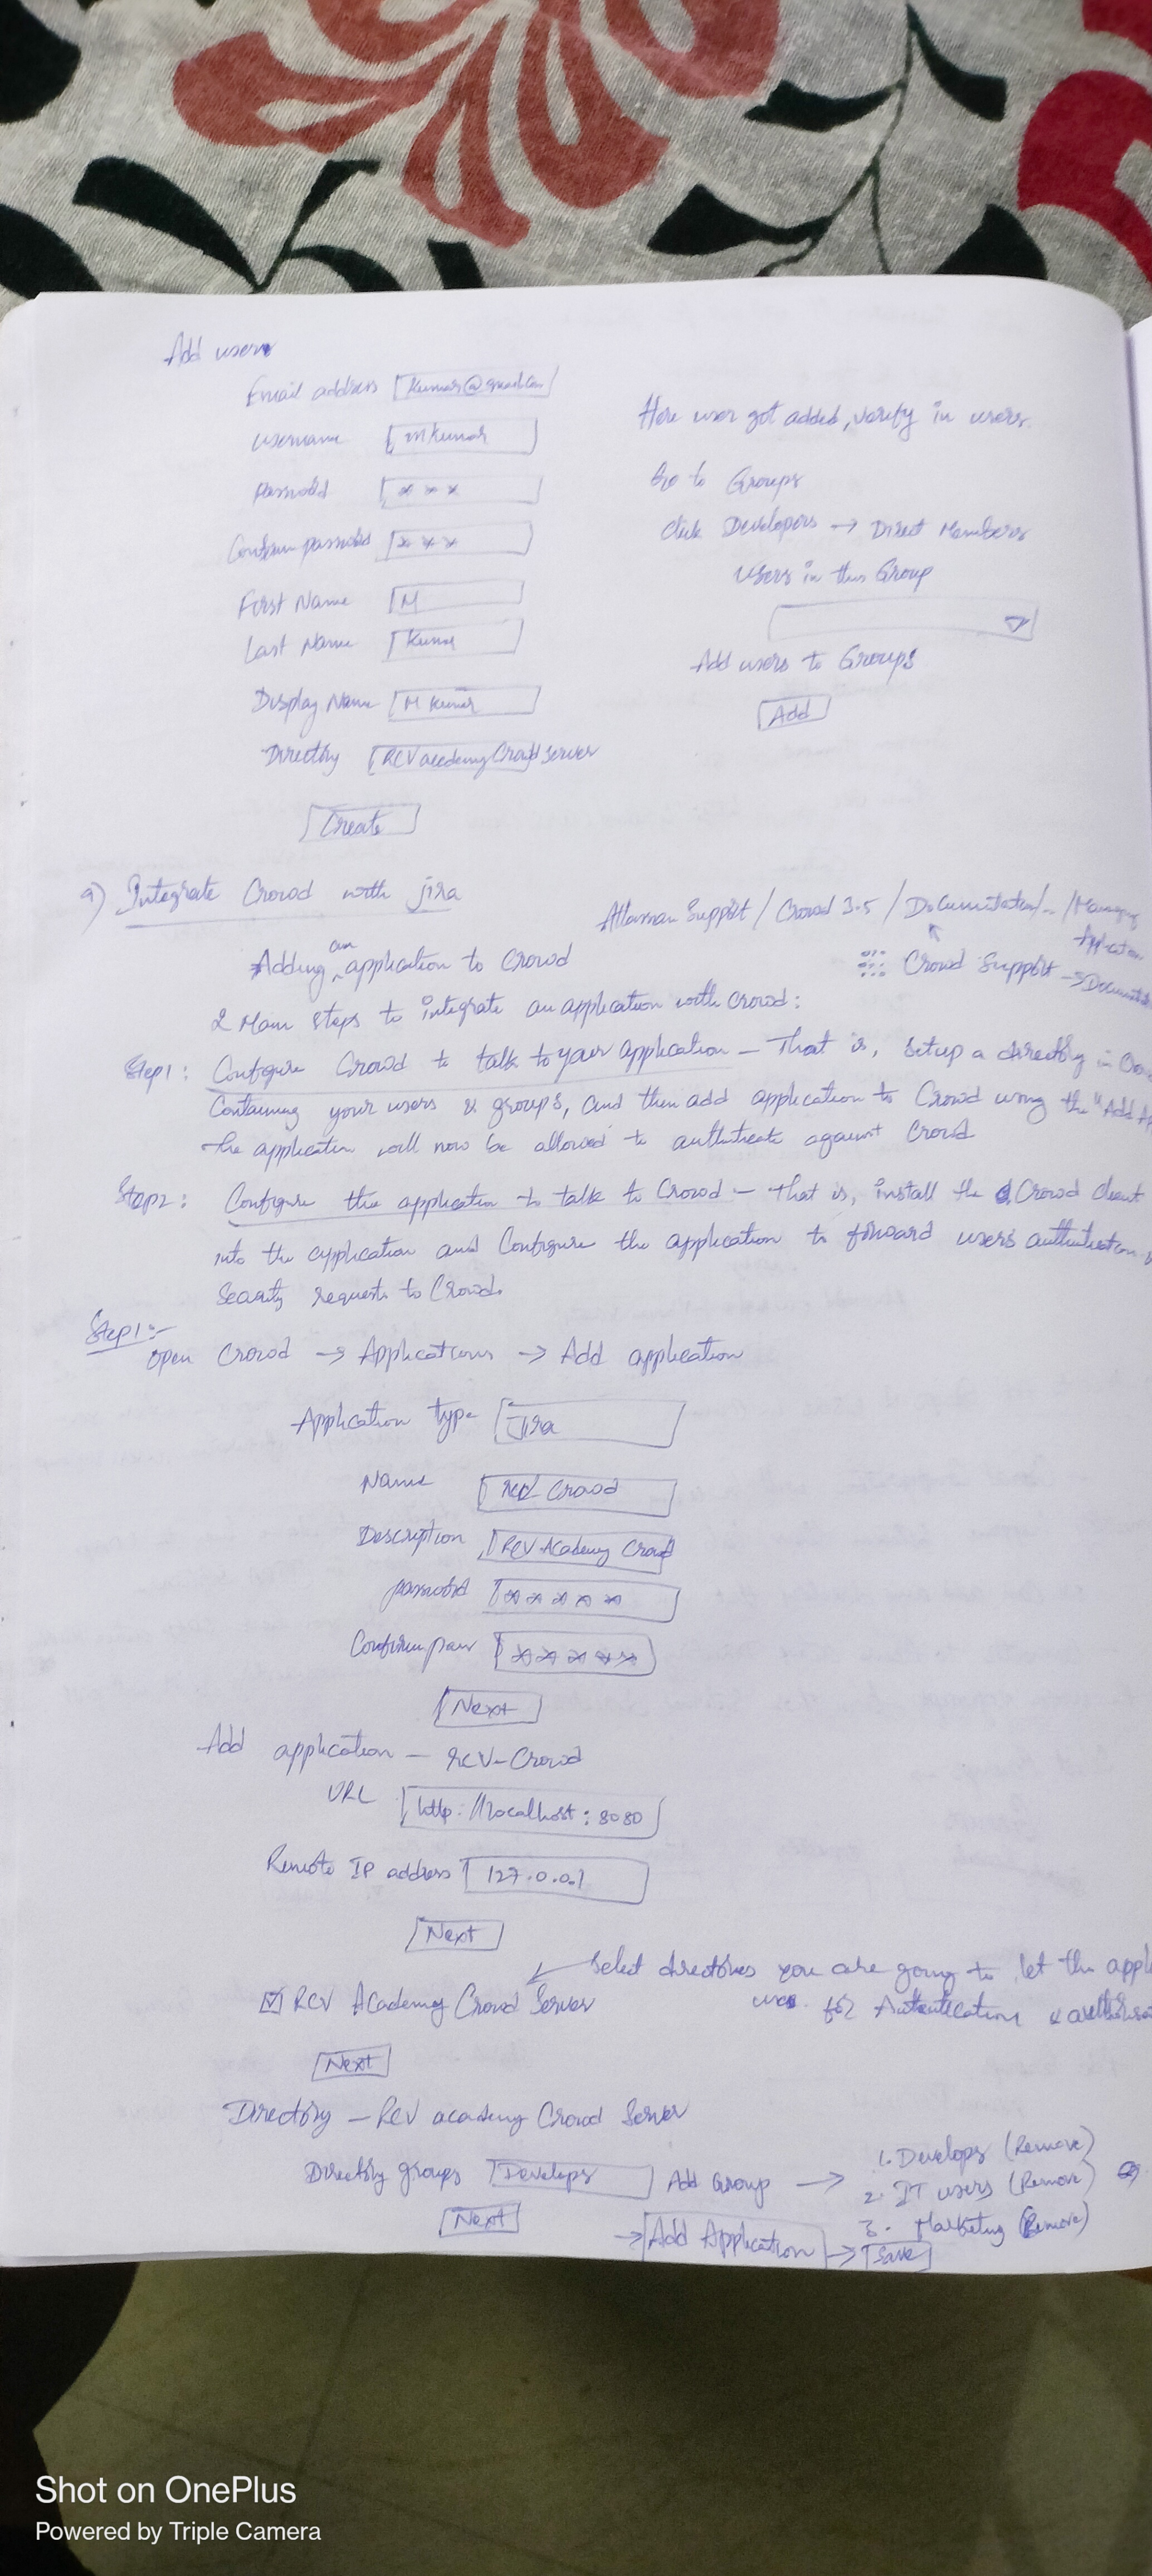 Add user
Email address [Kumar@gmail.com]
Username [mkumar]
Password [* * *]
Confirm password [* * *]
First Name [M]
Last Name [Kumar]
Display Name [M Kumar]
Directory [RCV academy Crowd Server
[Create]
Here user got added, verify in users.
Go to Groups
Click Developers → Direct Members
Users in this Group
Add users to Groups
[Add]
9) Integrate Crowd with jira
Atlassian Support / Crowd 3.5 / Documentation/.. /Managing
Application
Adding an application to Crowd
Crowd Support →
2 Main steps to integrate an application with crowd:
Step1: Configure Crowd to talk to your application - That is, setup a directory in
Containing your users & groups, and then add application to Crowd using the "Add
the application will now be allowed to authenticate against Crowd
Step2: Configure the application to talk to Crowd - That is, install the Crowd client
into the application and Configure the application to forward users authentication
Security requests to Crowd.
Step1:-
Open Crowd → Applications → Add application
Application type [Jira]
Name [RCV Crowd]
Description [RCV Academy Crowd]
password [* * * * *]
Confirm pass [* * * * *]
[Next]
Add application - RCV-Crowd
URL [http://localhost:8080]
Remote IP address [127.0.0.1]
[Next]
Select directories you are going to let the
for Autentication &
☑ RCV Academy Crowd Server
[Next]
Directory - RCV academy Crowd Server
Directory groups [Develops] Add Group →
1. Develops (Remove)
2. IT users (Remove)
3. Marketing (Remove)
[Next] → [Add Application] → [Save]
Shot on OnePlus
Powered by Triple Camera